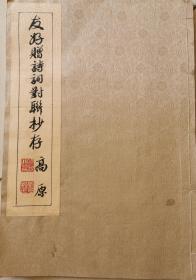 友好贈詩詞對聯抄存
高原